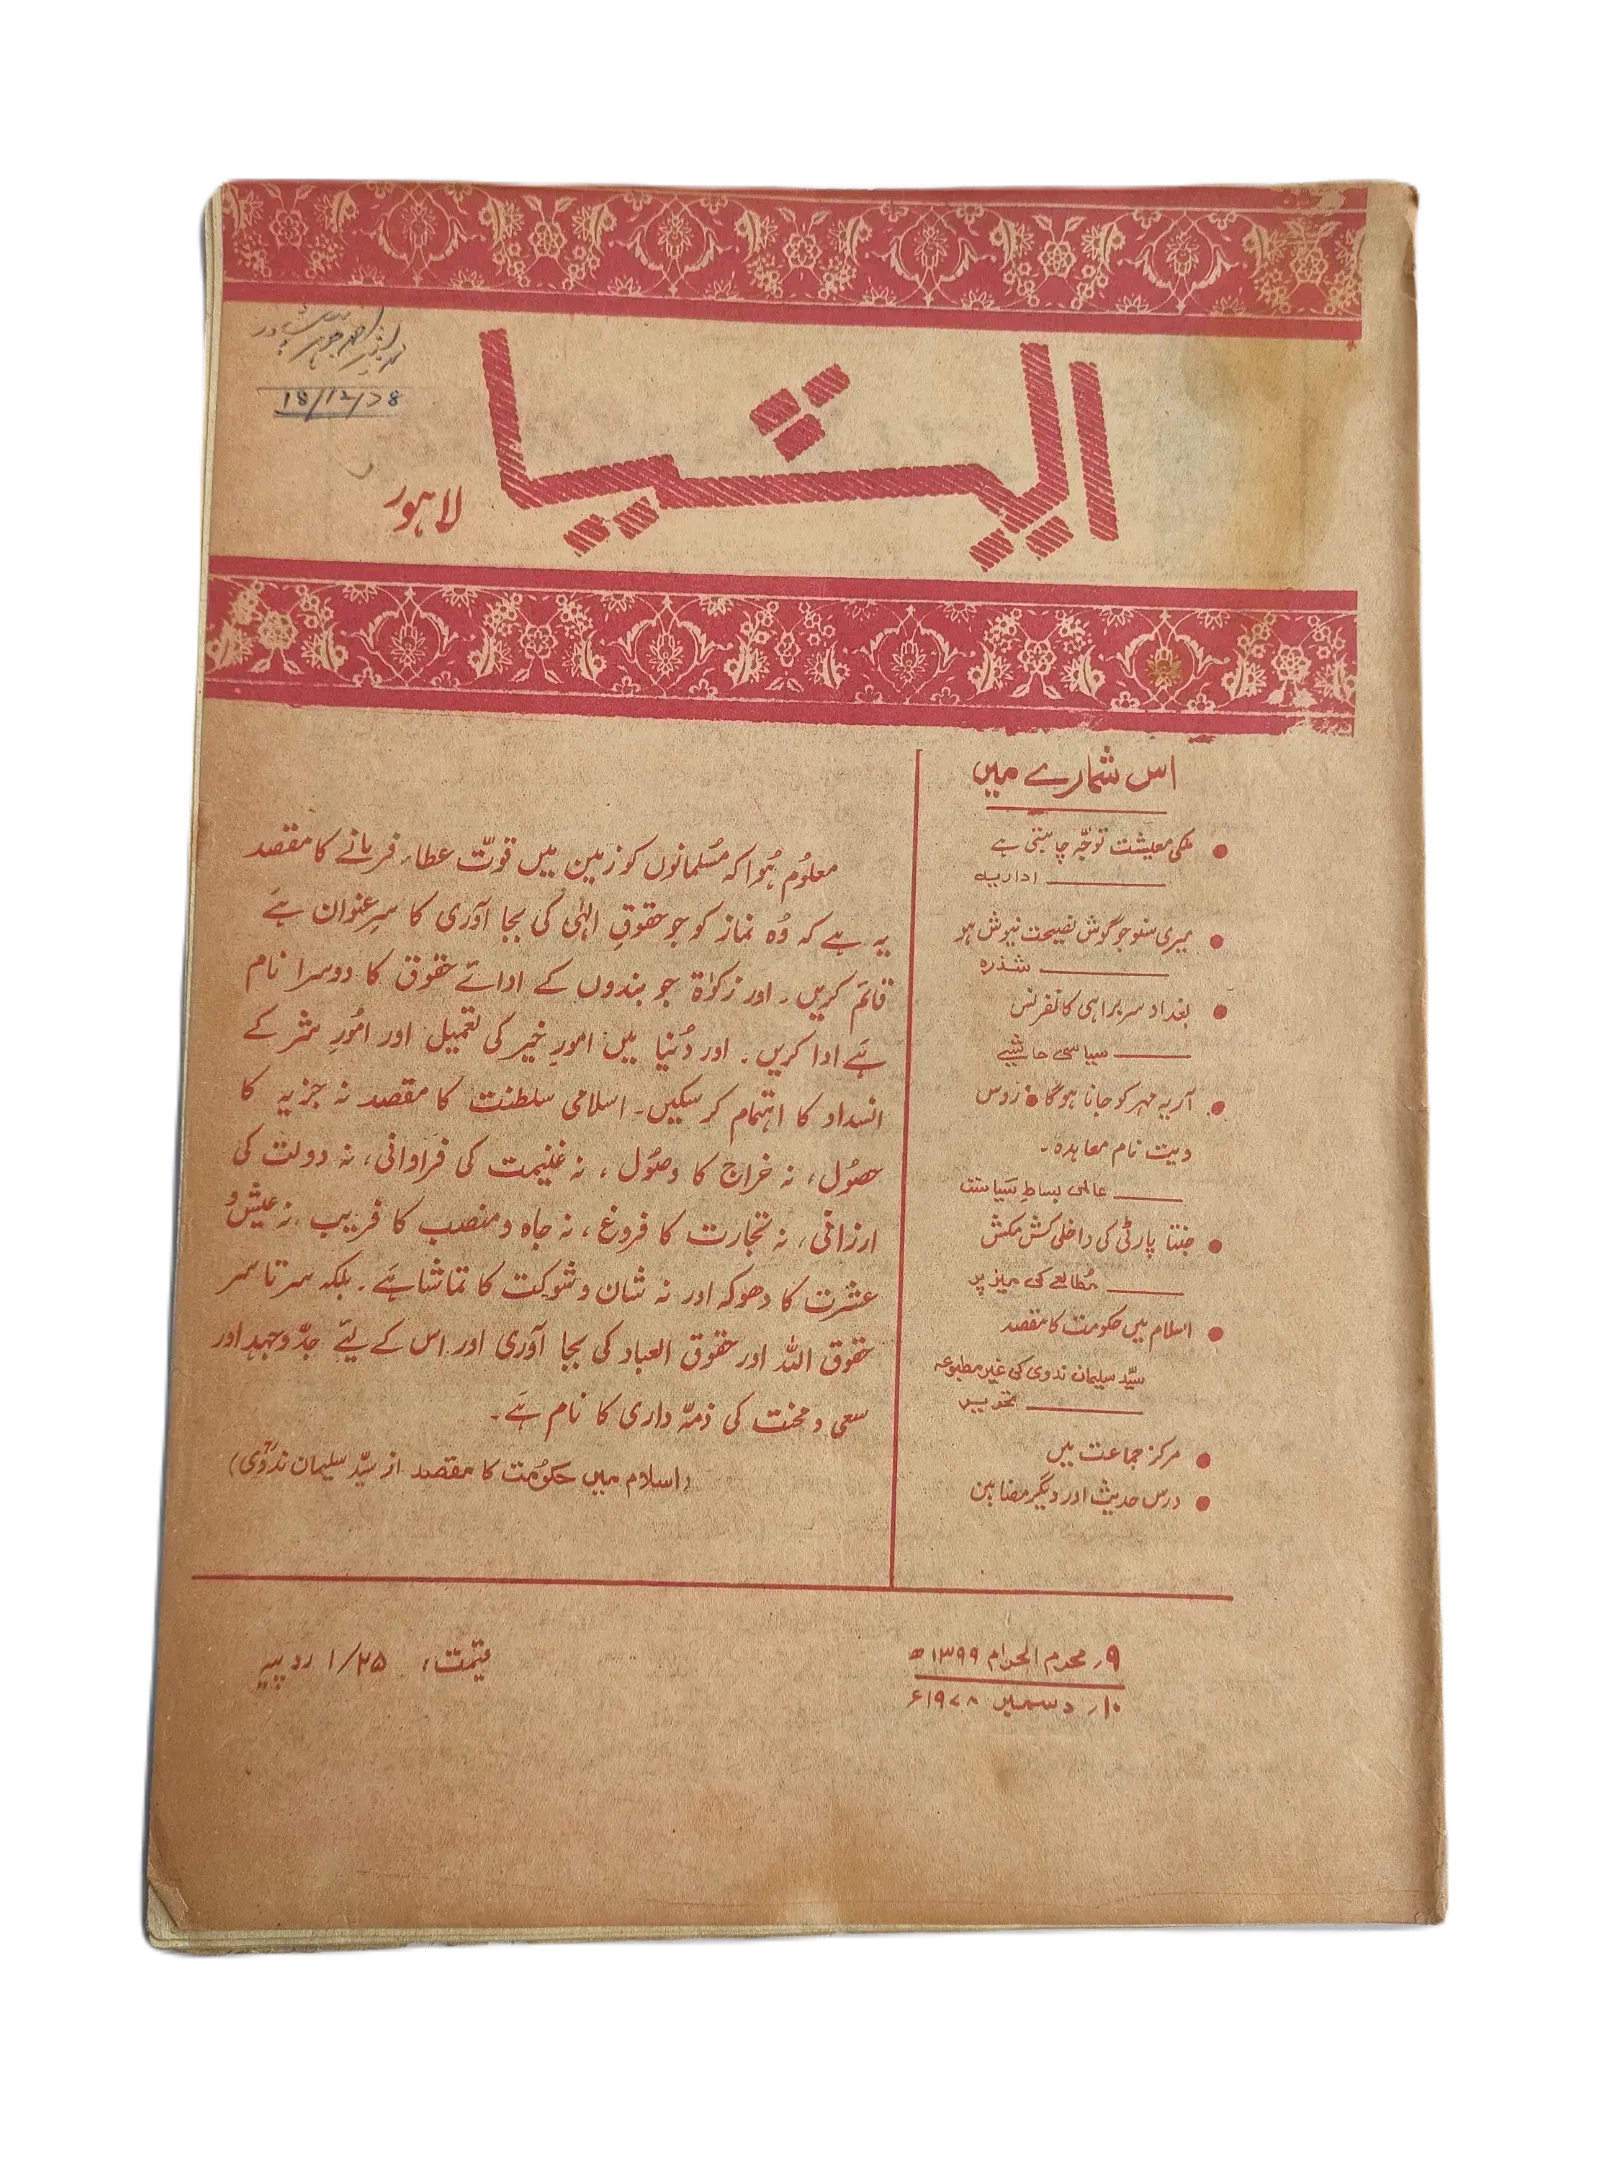 ایشیا
لاہور
18/12/78
اس شمارے میں
● ملکی معیشت توجّہ چاہتی ہے
اداریہ
● میری سنو جو گوش نصیحت نیوش ہو
شذرہ
● بغداد سربراہی کانفرنس
سیاسی حاشیے
● آریہ مہر کو جانا ہوگا ● روس
ویت نام معاہدہ ۔
عالمی بساطِ سیاست
● جنتا پارٹی کی داخلی کش مکش
مُطالعے کی میز پر
● اسلام میں حکومت کا مقصد
سیّد سلیمان ندوی کی غیر مطبوعہ
تحریر
● مرکز جماعت میں
● درس حدیث اور دیگر مضامین
معلوم ہُوا کہ مُسلمانوں کو زمین میں قوّت عطاء فرمانے کا مقصد
یہ ہے کہ وُہ نماز کو جو حقوقِ الہٰی کی بجا آوری کا سرِ عنوان ہے
قائم کریں ۔ اور زکوٰۃ جو بندوں کے ادائے حقوق کا دوسرا نام
ہَے ادا کریں ۔ اور دُنیا میں امورِ خیر کی تعمیل اور امُورِ شر کے
انسداد کا اہتمام کر سکیں۔ اسلامی سلطنت کا مقصد نہ جزیہ کا
حصُول، نہ خراج کا وصُول ، نہ غنیمت کی فراوانی، نہ دولت کی
ارزانی، نہ تجارت کا فروغ ، نہ جاہ و منصب کا فریب ، نہ عیش و
عشرت کا دھوکہ اور نہ شان و شوکت کا تماشا ہَے ۔ بلکہ سر تا سر
حقوق اللہ اور حقوق العباد کی بجا آوری اور اس کے لیئے جدّ و جہد اور
سعی و محنت کی ذمّہ داری کا نام ہَے ۔
(اسلام میں حکوُمت کا مقصد از سیّد سلیمان ندوی)
۹؍ محرم الحرام ۱۳۹۹ھ
۱۰؍ دسمبر ۱۹۷۸ء
قیمت، ۱/۲۵ روپیہ